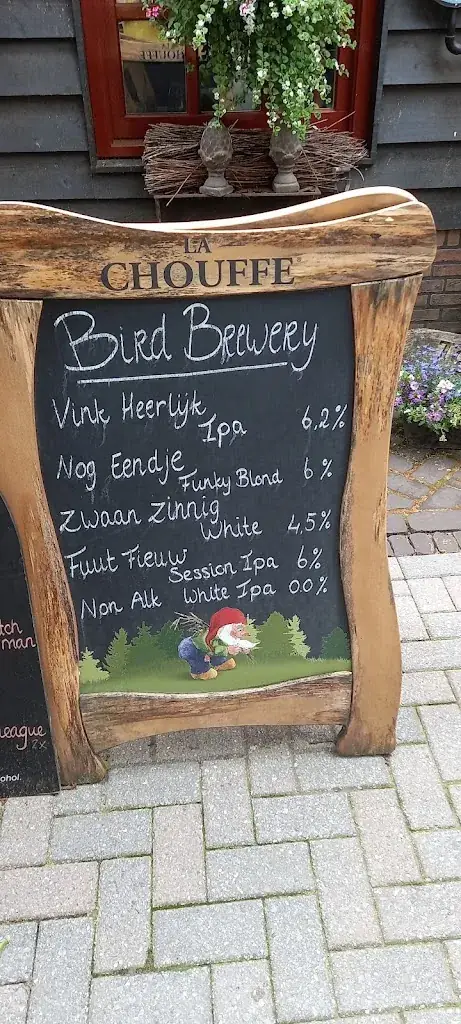 LA
CHOUFFE
Bird Brewery
Vink Heerlijk
Ipa 6,2%
Nog Eendje
Funky Blond 6%
Zwaan Zinnig
White 4,5%
Fuut Fieuw
Session Ipa 6%
Non Alk White Ipa 0.0%
tch
man
league
2x
ohol.